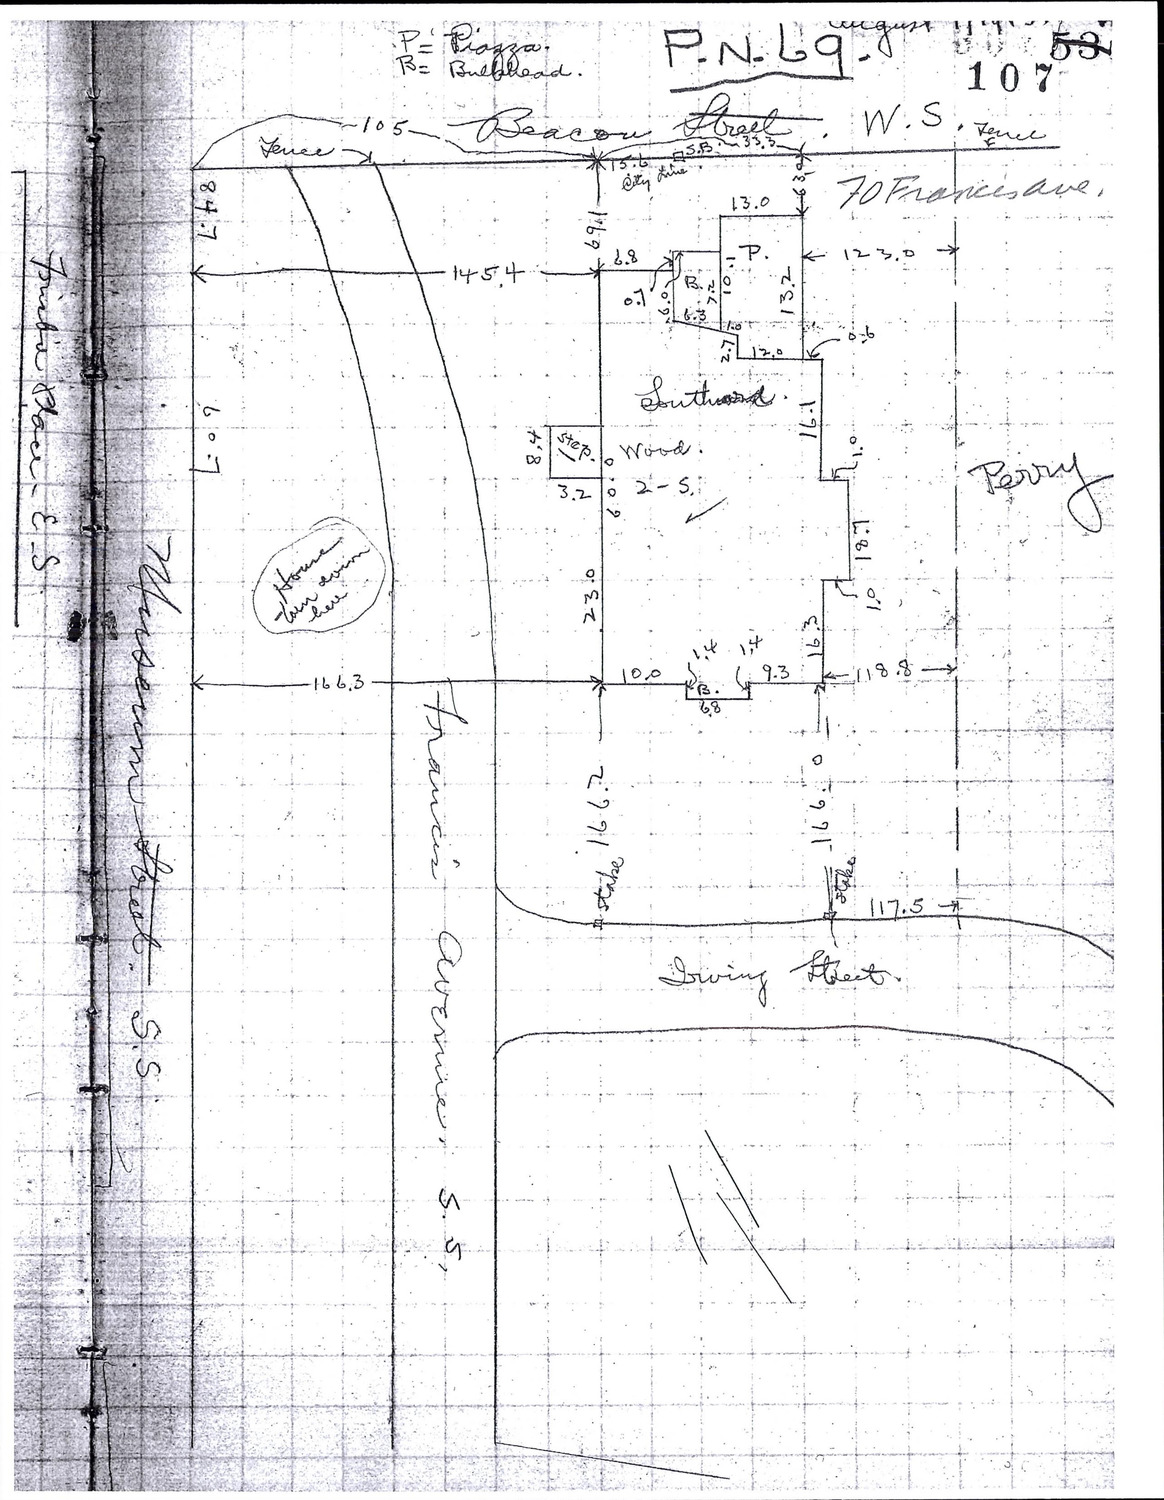 P = Piazza.
B = Bulkhead.
P.N. 69.
August
53
107
105
Beacon Street. W.S.
Fence
Fence
15.6
S.B.
33.3
City Line
63.9
70 Francis ave.
84.7
69.1
13.0
6.8
P.
123.0
145.4
0.7
6.0
B.
7.2
10.1
13.2
6.3
1.0
2.7
12.0
0.6
16.1
8.4
Step.
Wood.
3.2
60.0
2-S.
1.0
Perry
60.7
18.7
House
torn down
here
23.0
1.0
16.3
166.3
10.0
1.4
1.4
B.
6.8
9.3
118.8
166.2
166.0
Stake
Stake
117.5
Irving Street.
Francis Avenue. S.S.
Museum Street. S.S.
Place - E.S.